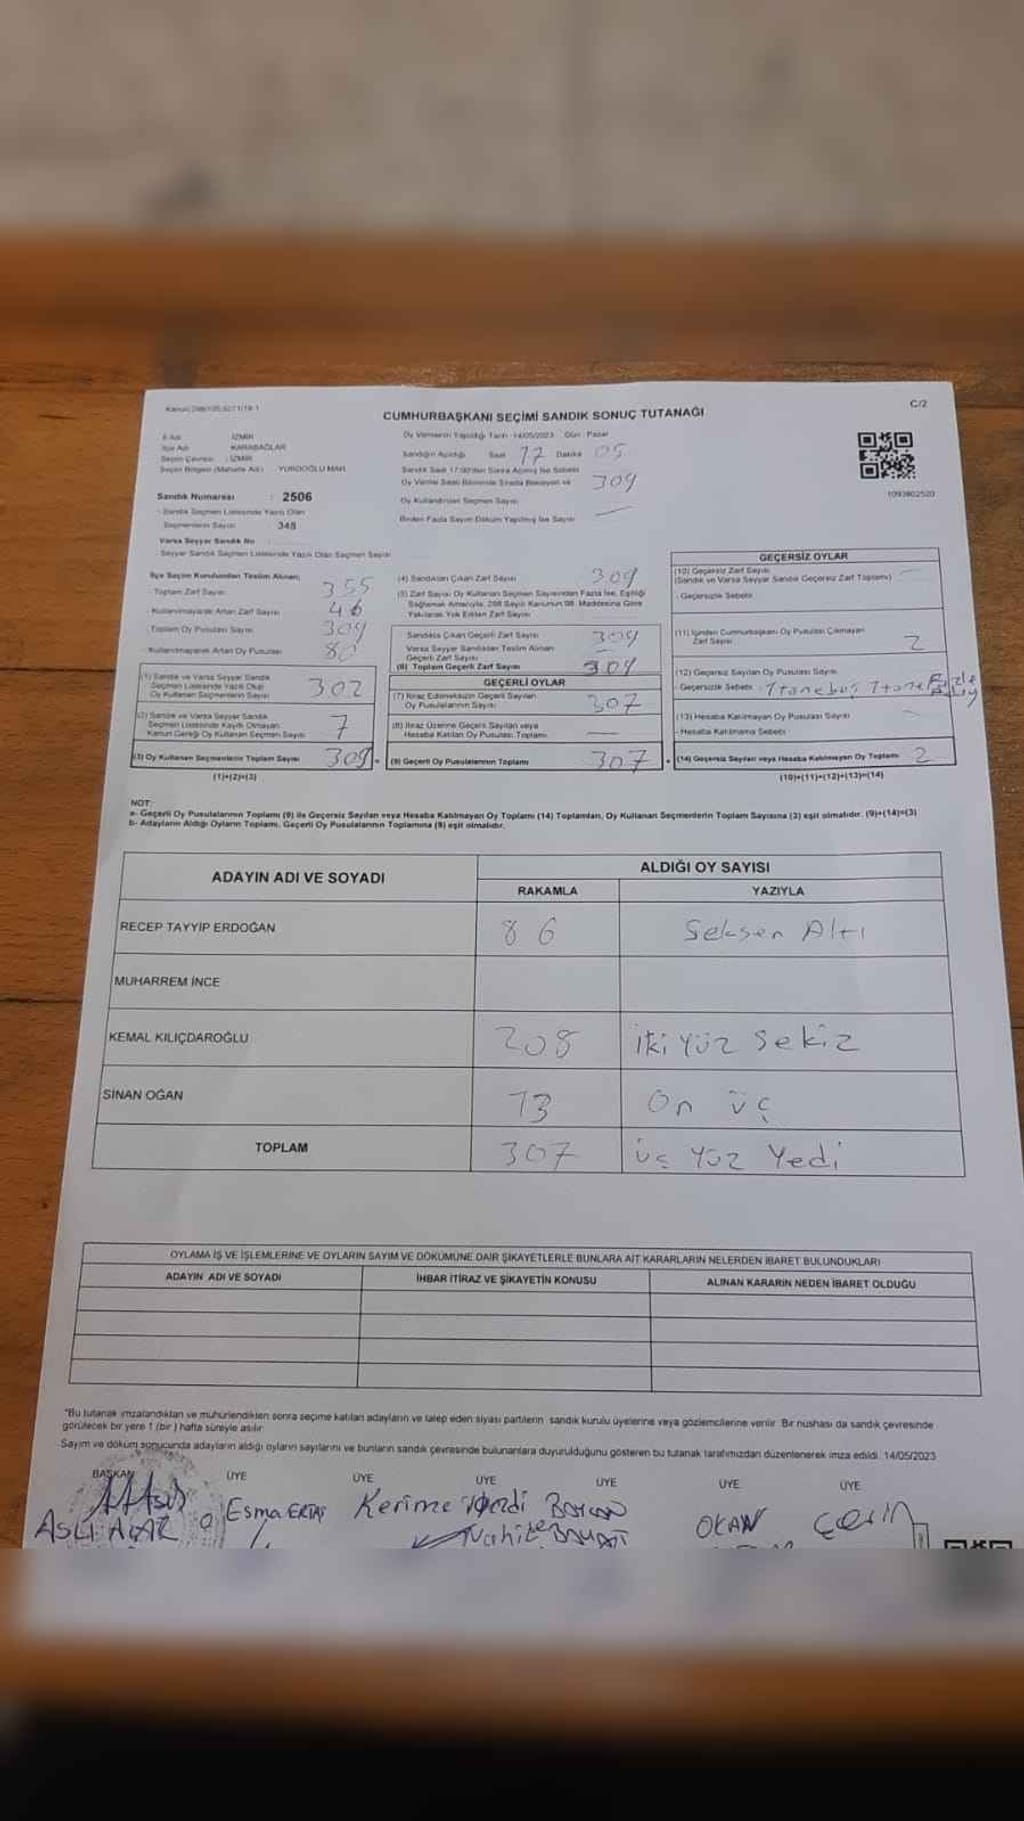 C/2
CUMHURBAŞKANI SEÇİMİ SANDIK SONUÇ TUTANAĞI
İl Adı : İZMİR
İlçe Adı : KARABAĞLAR
Seçim Çevresi : İZMİR
Seçim Bölgesi (Mahalle Adı) : YURDOĞLU MAH.
Sandık Numarası : 2506
Sandık Seçmen Listesinde Yazılı Olan
Seçmenlerin Sayısı : 348
Varsa Seyyar Sandık No
Seyyar Sandık Seçmen Listesinde Yazılı Olan Seçmen Sayısı
Oy Vermenin Yapıldığı Tarih : 14/05/2023 Gün : Pazar
Sandığın Açıldığı Saat 17 Dakika 05
Sandık Saat 17:00'den Sonra Açılmış İse Sebebi
Oy Kullandırılan Seçmen Sayısı 309
Birden Fazla Sayım Döküm Yapılmış İse Sayısı —
1093802520
İlçe Seçim Kurulundan Teslim Alınan;
Toplam Zarf Sayısı 355
Kullanılmayarak Artan Zarf Sayısı 46
Toplam Oy Pusulası Sayısı 309
Kullanılmayarak Artan Oy Pusulası 80
(1) Sandık ve Varsa Seyyar Sandık
Seçmen Listesinde Yazılı Olup
Oy Kullanan Seçmenlerin Sayısı 302
(2) Sandık ve Varsa Seyyar Sandık
Seçmen Listesinde Kayıtlı Olmayan
Kanun Gereği Oy Kullanan Seçmen Sayısı 7
(3) Oy Kullanan Seçmenlerin Toplam Sayısı 309
(1)+(2)=(3)
(4) Sandıktan Çıkan Zarf Sayısı 309
(5) Zarf Sayısı Oy Kullanan Seçmen Sayısından Fazla İse, Eşitliği
Sağlamak Amacıyla, 298 Sayılı Kanunun 98. Maddesine Göre
Yakılarak Yok Edilen Zarf Sayısı
Sandıkta Çıkan Geçerli Zarf Sayısı 309
Varsa Seyyar Sandıktan Teslim Alınan
Geçerli Zarf Sayısı —
(6) Toplam Geçerli Zarf Sayısı 309
GEÇERLİ OYLAR
(7) İtiraz Edilmeksizin Geçerli Sayılan
Oy Pusulalarının Sayısı 307
(8) İtiraz Üzerine Geçerli Sayılan veya
Hesaba Katılan Oy Pusulası Toplamı —
(9) Geçerli Oy Pusulalarının Toplamı 307
GEÇERSİZ OYLAR
(10) Geçersiz Zarf Sayısı
(Sandık ve Varsa Seyyar Sandık Geçersiz Zarf Toplamı) —
- Geçersizlik Sebebi
(11) İçinden Cumhurbaşkanı Oy Pusulası Çıkmayan
Zarf Sayısı 2
(12) Geçersiz Sayılan Oy Pusulası Sayısı
- Geçersizlik Sebebi
(13) Hesaba Katılmayan Oy Pusulası Sayısı —
- Hesaba Katılmama Sebebi
(14) Geçersiz Sayılan veya Hesaba Katılmayan Oy Toplamı 2
(10)+(11)+(12)+(13)=(14)
NOT:
a- Geçerli Oy Pusulalarının Toplamı (9) ile Geçersiz Sayılan veya Hesaba Katılmayan Oy Toplamı (14) Toplamları, Oy Kullanan Seçmenlerin Toplam Sayısına (3) eşit olmalıdır. (9)+(14)=(3)
b- Adayların Aldığı Oyların Toplamı, Geçerli Oy Pusulalarının Toplamına (9) eşit olmalıdır.
ADAYIN ADI VE SOYADI
ALDIĞI OY SAYISI
RAKAMLA YAZIYLA
RECEP TAYYİP ERDOĞAN 86 Seksen Altı
MUHARREM İNCE
KEMAL KILIÇDAROĞLU 208 iki yüz sekiz
SİNAN OĞAN 13 On üç
TOPLAM 307 üç yüz yedi
OYLAMA İŞ VE İŞLEMLERİNE VE OYLARIN SAYIM VE DÖKÜMÜNE DAİR ŞİKAYETLERLE BUNLARA AİT KARARLARIN NELERDEN İBARET BULUNDUKLARI
ADAYIN ADI VE SOYADI İHBAR İTİRAZ VE ŞİKAYETİN KONUSU ALINAN KARARIN NEDEN İBARET OLDUĞU
"Bu tutanak imzalandıktan ve mühürlendikten sonra seçime katılan adayların ve talep eden siyasi partilerin sandık kurulu üyelerine veya gözlemcilerine verilir. Bir nüshası da sandık çevresinde
görülecek bir yere 1 (bir) hafta süreyle asılır.
Sayım ve döküm sonucunda adayların aldığı oyların sayılarını ve bunların sandık çevresinde bulunanlara duyurulduğunu gösteren bu tutanak tarafımızdan düzenlenerek imza edildi. 14/05/2023
BAŞKAN ÜYE ÜYE ÜYE ÜYE ÜYE ÜYE
ASLI ACAR Esma Kerime OKAN